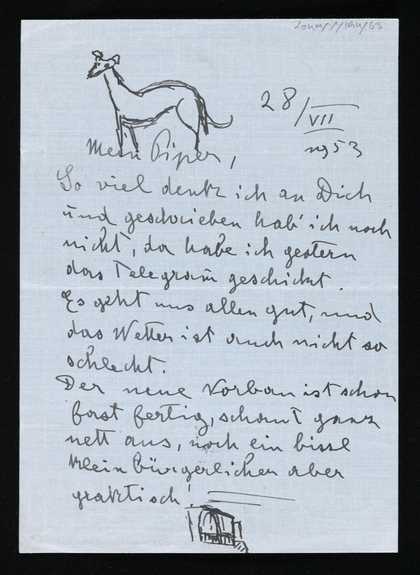 28/VII
1953
Mein Piper,
So viel denk ich an Dich
und geschrieben hab' ich noch
nicht, da habe ich gestern
das Telegram geschickt.
Es geht uns allen gut, und
das Wetter ist auch nicht so
schlecht.
Der neue Vorbau ist schon
fast fertig, schaut ganz
nett aus, noch ein bissl
klein bürgerlicher aber
praktisch!